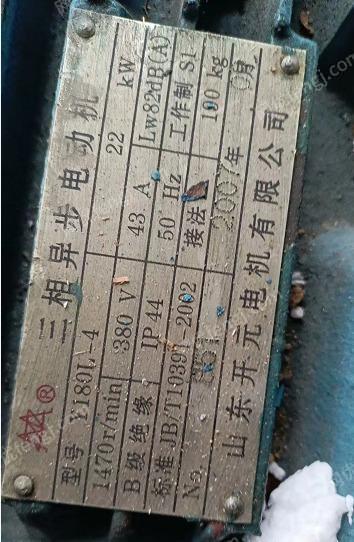 三相异步电动机
®
型号 Y180L-4 22 kW
1470r/min 380 V 43 A Lw82dB(A)
B级绝缘 IP44 50 Hz 工作制 S1
标准 -2002 接法 kg
No. 2007年
山东开元电机有限公司